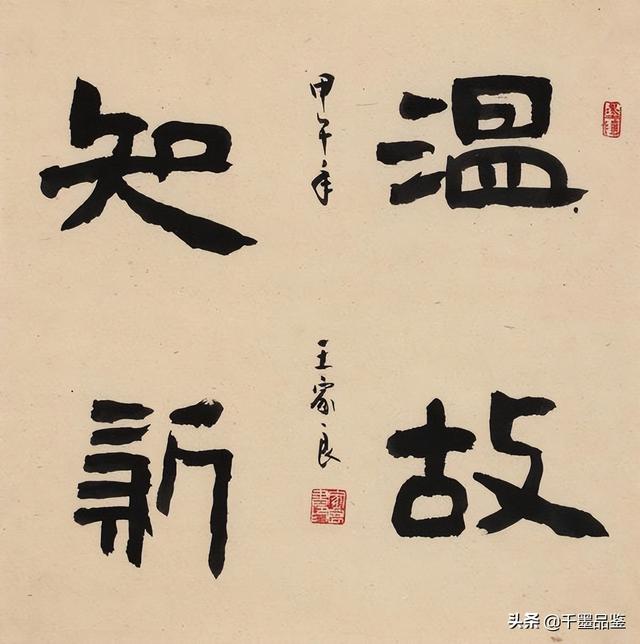 温故
知新
甲午年
王家良
头条 @千墨品鉴